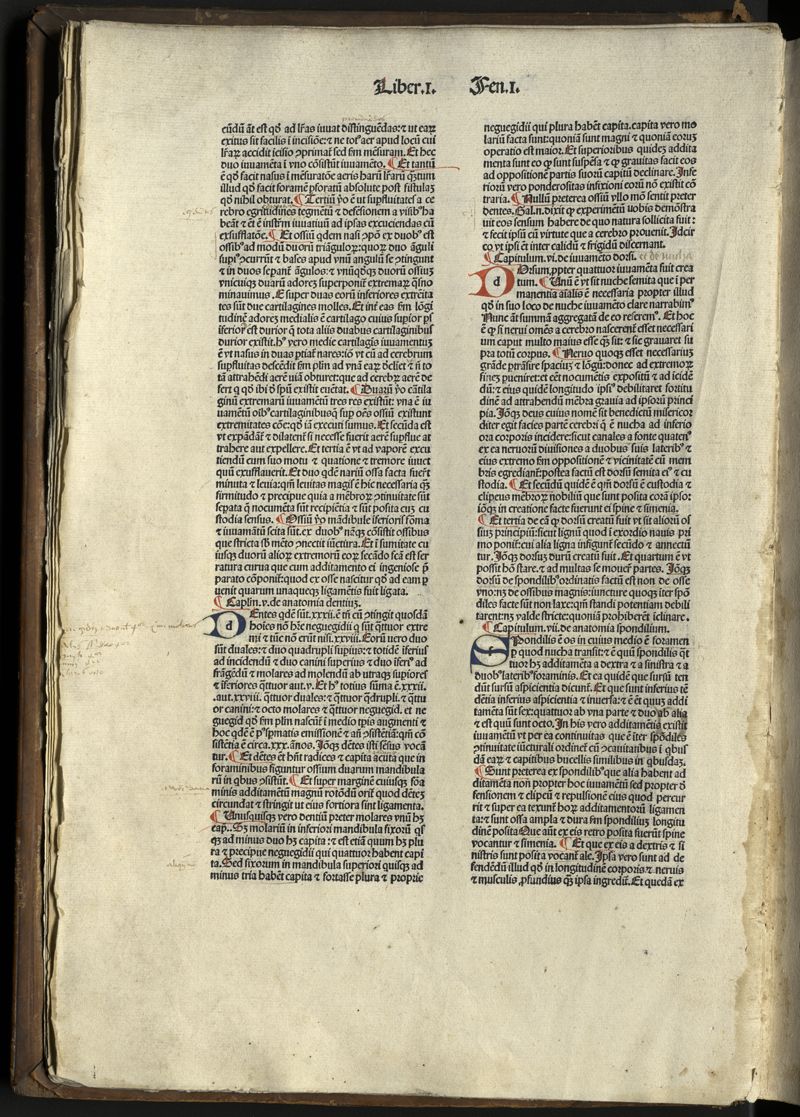 Liber.I. Fen.I.
eūdū āt est qđ ad lr̄as iuuat distinguēdas: ⁊ ut earꝝ
exitus sit facilis ī incisiōe: ⁊ ne totꝰ aer apud locū cui
duo iuuamēta ī vno cōsistūt iuuamēto. ¶ Et tantū
illud qđ facit foramē pforatū absolute post fistulaꝫ
qđ nihil obturat. ¶ Tertiū ṽo ē ut supfluitates a ce
rebro egritudines tegmētū ⁊ defēsionem a visibꝰ ha
exsufflatōe. ¶ Et ossiū qdem nasi ꝯpō ex duobꝰ est
ossibꝰ ad modū duorū triāgulorꝝ: quorꝝ duo āguli
⁊ in duos sepant āgulos: ⁊ vnūqdqꝫ duorū ossiuꝫ
vnicuiqꝫ duarū adoreꝫ superponit̄ extremaꝝ q̄s no
minauimus. E super duas eorū inferiores extrēita
tes sūt due cartilagines molles. Et int̄ eas fm lōgi
tudinē adoreꝫ medialis ē cartilago cuius supior ps
iferiorꝰ est durior q̄ tota aliis duabus cartilaginibus
ē vt nasus in duas ptiat̄ nares: iō vt cū ad cerebrum
extremitates cōe: qđ iā executi sumus. Et secūda est
vt expādāt̄ ⁊ dilatent̄ si necesse fuerit aerē supflue at
trahere aut expellere. Et tertia ē vt ad vaporē excu
tiendū cum suo motu ⁊ quatione ⁊ tremore iuuet
quū exsufflauerit. Et duo qdē nariū ossa facta fuer̄t
minuta ⁊ leuia: qm̄ leuitas magis ē hic necessaria q̄ꝫ
firmitudo ⁊ precipue quia a mēbrorꝝ ꝯtinuitate sūt
stodia sensus. ¶ Ossiū ṽo mādibule iferioris forma
⁊ iuuamētū scita sūt. ex duobꝰ nāqꝫ cōsistit ossibus
que stricta sb mēto ꝯnectit iūctura. Et ī sumitate cu
iusqꝫ duorū aliorꝝ extremorū eorꝝ secādo scā est ser
ratura curua que cum additamento ei ingeniose p̄
parato cōponit̄: quod ex osse nascitur qđ ad eam p
uenit quarum unaqueqꝫ ligamētis fuit ligata.
¶ Caplm. v. de anatomia dentiuꝫ.
Dentes qdē sūt. xxxii. ⁊ īs cū ꝯtingit quosdā
hoīes nō hr̄e neguegidi q sūt q̄ttuor extre
mi ⁊ tūc nō erūt nisi. xxviii. Eorū uero duo
sūt duales: ⁊ duo quadrupli supius: ⁊ totidē iferius
ad incidendū ⁊ duo canini superius ⁊ duo iferiꝰ ad
frāgēdū ⁊ molares ad molendū ab utraqꝫ supiores
⁊ iferiores q̄ttuor aut. v. Et hꝰ totius sūma ē. xxxii.
.aut. xxviii. q̄ttuor duales: ⁊ q̄ttuor q̄drupli. ⁊ q̄ttu
or canini: ⁊ octo molares ⁊ q̄ttuor neguegid. et ne
guegid qđ fm plin nascūt̄ ī medio tpis augmenti ⁊
sistētia ē circa. xxx. ānos. Jōqꝫ dētes isti sēsus vocā
tur. ¶ Et dētes ēt hn̄t radices ⁊ capita acuta que in
foraminibus figuntur ossium duarum mandibula
rū in qbus ꝯsistūt. ¶ Et super marginē cuiusqꝫ fora
minis additamētū magnū rotōdū orit̄ quod dēteꝫ
circundat ⁊ stringit ut eius fortiora sint ligamenta.
¶ Unusquisqꝫ vero dentiū preter molares vnū hꝫ
cap. Sꝫ molariū in inferiori mandibula fixorū qs
qꝫ ad minus duo hꝫ capita: ⁊ est etiā quum hꝫ plu
ra ⁊ precipue neguegidi qui quattuor habent capi
ta. Sed fixorum in mandibula superiori quisqꝫ ad
minus tria habēt capita ⁊ fortasse plura ⁊ proprie
neguegidii qui plura habēt capita. capita vero mo
lariū facta sunt: quoniā sunt magni ⁊ quoniā eoruꝫ
operatio est maior. Et superioribus quideꝫ addita
menta sunt eo q̄ sunt suspēsa ⁊ q̄ grauitas facit eos
ad oppositionē partis suorū capitū declinare. Infe
riorū vero ponderositas infixioni eorū nō existit cō
traria. ¶ Nullū preterea ossiū vllo mō sentit preter
dentes. Gal. n. dixit q̄ experimētū uobis demōstra
uit eos sensum habere de quo natura sollicita fuit:
⁊ fecit ipsū cū virtute que a cerebro prouenit. Idcir
co vt ipsi ēt inter calidū ⁊ frigidū discernant.
¶ Capitulum. vi. de iuuamēto dorsi.
Dorsum ppter quattuor iuuamēta fuit crea
tum. ¶ Unū ē vt sit nuche semita que ī per
manentia aīalis ē necessaria propter illud
qđ in suo loco de nuche iuuamēto clare narrabimꝰ
Nunc āt summā aggregatā de eo referemꝰ. Et hoc
ē q̄ si nerui omēs a cerebro nascerent̄ esset necessari
um caput multo maius esse q̄ꝫ sit: ⁊ sic grauaret su
pra totū corpus. ¶ Neruo quoqꝫ esset necessariuꝫ
grāde ptrāsire spaciuꝫ ⁊ lōgū: donec ad extremorꝝ
fineꝫ pueniret: et eēt nocumētis expositū ⁊ ad icidē
dū: ⁊ eius quidē longitudo ipsiꝰ debilitaret fortitu
dinē ad attrahendū mēbra grauia ad ipsorū princi
pia. Jōqꝫ deus cuius nomē sit benedictū misericor
diter egit facies partē cerebri q̄ ē nucha ad inferio
ora corporis incidere: sicut canales a fonte quatenꝰ
ex ea neruorū diuisiones a duobus suis lateribꝰ ⁊
eius extremo fm oppositionē ⁊ vicinitatē cū mem
bris egrediant̄: postea factū est dorsū semita ei ⁊ cu
stodia. ¶ Et secūdū quidē ē qm̄ dorsū ē custodia ⁊
clipeus mēbrorꝝ nobiliū que sunt posita corā ipso:
iōqꝫ in creatione facte fuerunt ei spine ⁊ simenia.
¶ Et tertia de cā q̄ dorsū creatū fuit vt sit aliorū os
siuꝫ principiū: sicut lignū quod ī exordio nauis pri
mo ponit̄: cui alia ligna infigunt̄ secūdo ⁊ annectū
tur. Jōqꝫ dorsuꝫ durū creatū fuit. Et quartum ē vt
possit hō stare. ⁊ ad multas se mouer̄ partes. Jōqꝫ
dorsū de spondilibꝰ ordinatis factū est non de osse
vno: nꝫ de ossibus magnis: iuncture quoqꝫ iter spō
diles facte sūt non laxe: qm̄ standi potentiam debili
tarent: nꝫ valde stricte: quoniā prohiberēt iclinare.
¶ Capitulum. vii. de anatomia spondilium.
Spondilis ē os in cuius medio ē foramen
p quod nucha transit: ⁊ ē quū spondilis q̄t
tuor hꝫ additamēta a dextra ⁊ a sinistra ⁊ a
duobꝰ lateribꝰ foraminis. Et ea quidē que sursū ten
dūt sursū aspicientia dicunt̄. Et que sunt inferius tē
dētia inferius aspicientia ⁊ inuersa: ⁊ ē ēt quuꝫ addi
tamēta sūt sex: quattuor ab vna parte ⁊ duo ab alia
⁊ est quū sunt octo. In his vero additamētis existit
iuuamētū vt per ea continuitas que ē iter spōdiles
ꝯtinuitate iūcturali ordinet̄ cū ꝯcauitatibus ī qbus
dā earꝝ ⁊ capitibus bucellis similibus in qbusdaꝫ.
¶ Sunt preterea ex spondilibꝰ que alia habent ad
ditamēta non propter hoc iuuamētū sed propter d̄
fensionem ⁊ clipeū ⁊ repulsionē eius quod percur
rit ⁊ super ea texunt̄ horꝝ additamentorū ligamen
ta: ⁊ sunt ossa ampla ⁊ dura fm spondiliuꝫ longitu
dinē posita Que aūt ex eis retro posita fuerūt spine
vocantur ⁊ simenia. ¶ Et que ex eis a dextris ⁊ si
nistris sunt posita vocant̄ ale. Ipsa vero sunt ad de
fendēdū illud qđ in longitudinē corporis ⁊ neruis
⁊ musculis pfundius q̄ꝫ ipsa ingredit̄. Et quedā ex